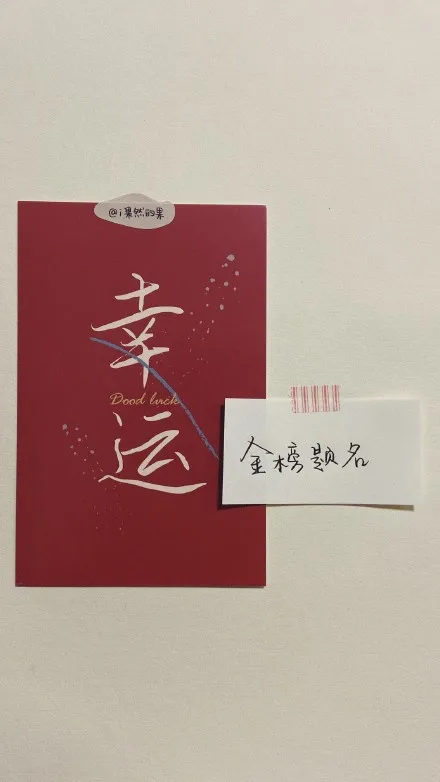 @i果然的果
幸
Dood luck
运
金榜题名